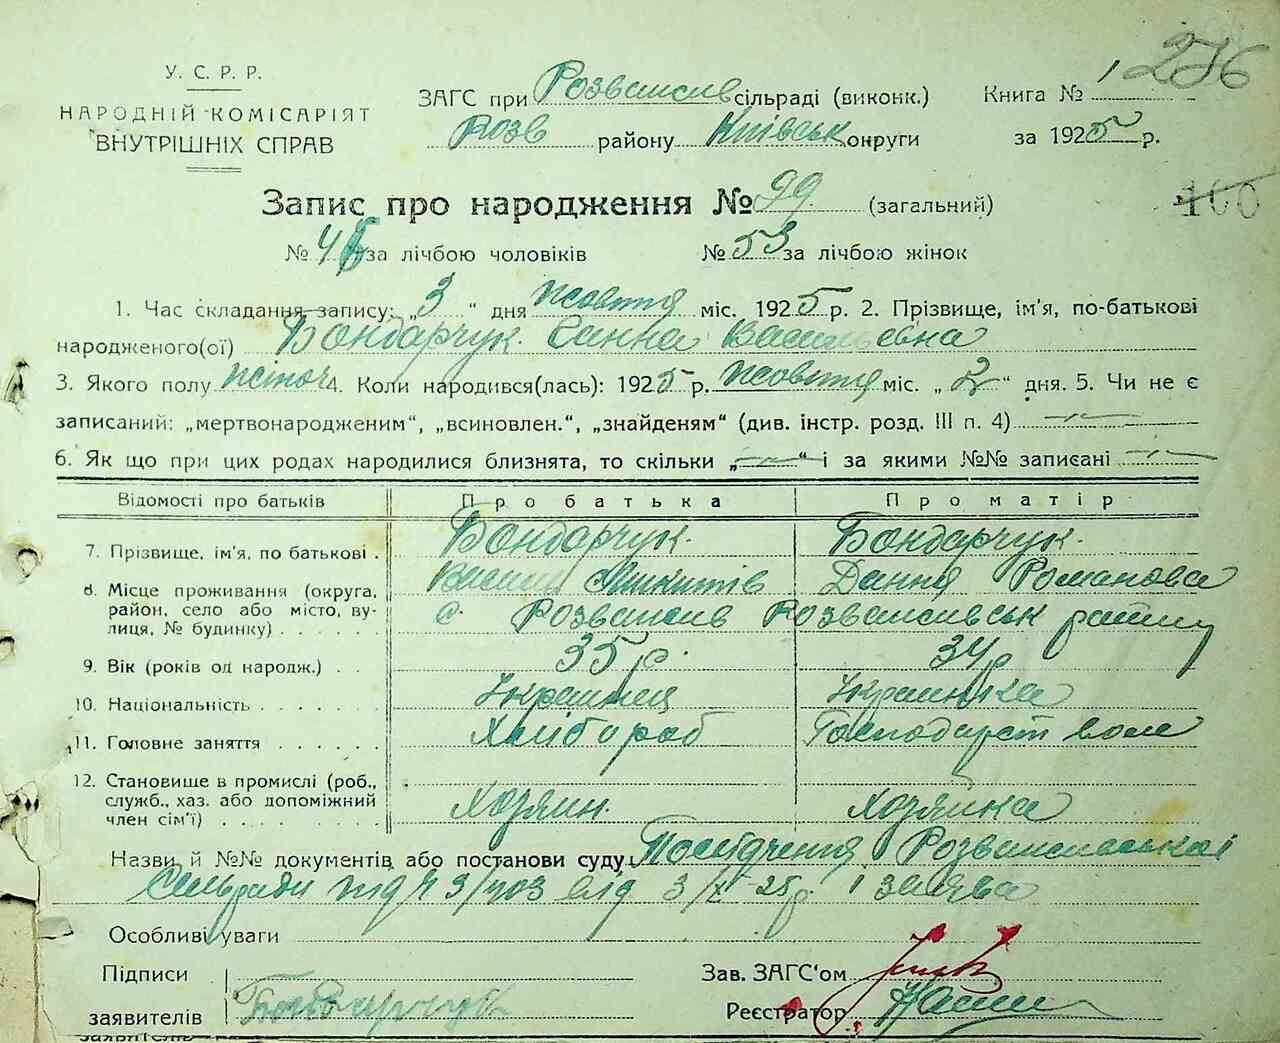 276
У. С. Р. Р.
НАРОДНІЙ КОМІСАРІЯТ
ВНУТРІШНІХ СПРАВ
ЗАГС при Розважив сільраді (виконк.) Книга №
Розв району Київськ округи за 1925 р.
Запис про народження № 99 (загальний)
100
№ 46 за лічбою чоловіків № 53 за лічбою жінок
1. Час складання запису: „3" дня жовтня міс. 1925 р. 2. Прізвище, ім'я, по-батькові
народженого(ої) Бондарчук Ганна Васильєвна
3. Якого полу жіноч 4. Коли народився(лась): 1925 р. жовтня міс. „2" дня. 5. Чи не є
записаний: „мертвонародженим", „всиновлен.", „знайденям" (див. інстр. розд. III п. 4)
6. Як що при цих родах народилися близнята, то скільки „—" і за якими №№ записані
Відомості про батьків Про батька Про матір
7. Прізвище, ім'я, по батькові . Бондарчук. Бондарчук.
Василь Микитів Романова
8. Місце проживання (округа, район, село або місто, вулиця, № будинку) с. Розважив Розважівськ району
9. Вік (років од народж.) . . 35 р. 34 р
10. Національність . . . . . . Українец Українка
11. Головне заняття . . . . . . Хлібороб Господарст
12. Становище в промислі (роб., служб., хаз. або допоміжний член сім'ї) . . . . Хозяин. Хозяйка
Назви й №№ документів або постанови суду Посвідчення Розважівської
Сельради під Ч 3/703 від 3/X-25р. і заява
Особливі уваги
Підписи
заявителів
Зав. ЗАГС'ом
Реєстратор
заявителів